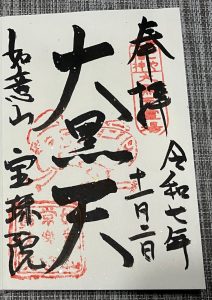 奉拝
令和七年
十一月二日
大黒天
如意山
宝珠院